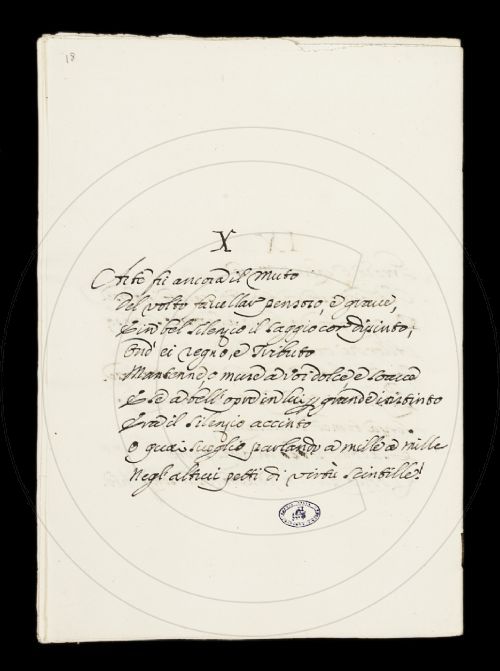 18
X
Arte fù ancora il muto
Del volto favellar pensoso, e grave,
E in bel silenzio il saggio cor distinto,
Ond' ei regno, e Tributo
E se a bell' opre in lui grande istinto
Era il silenzio accinto
O quai sveglio parlando a mille a mille
Negl' altrui petti di virtù scintille!